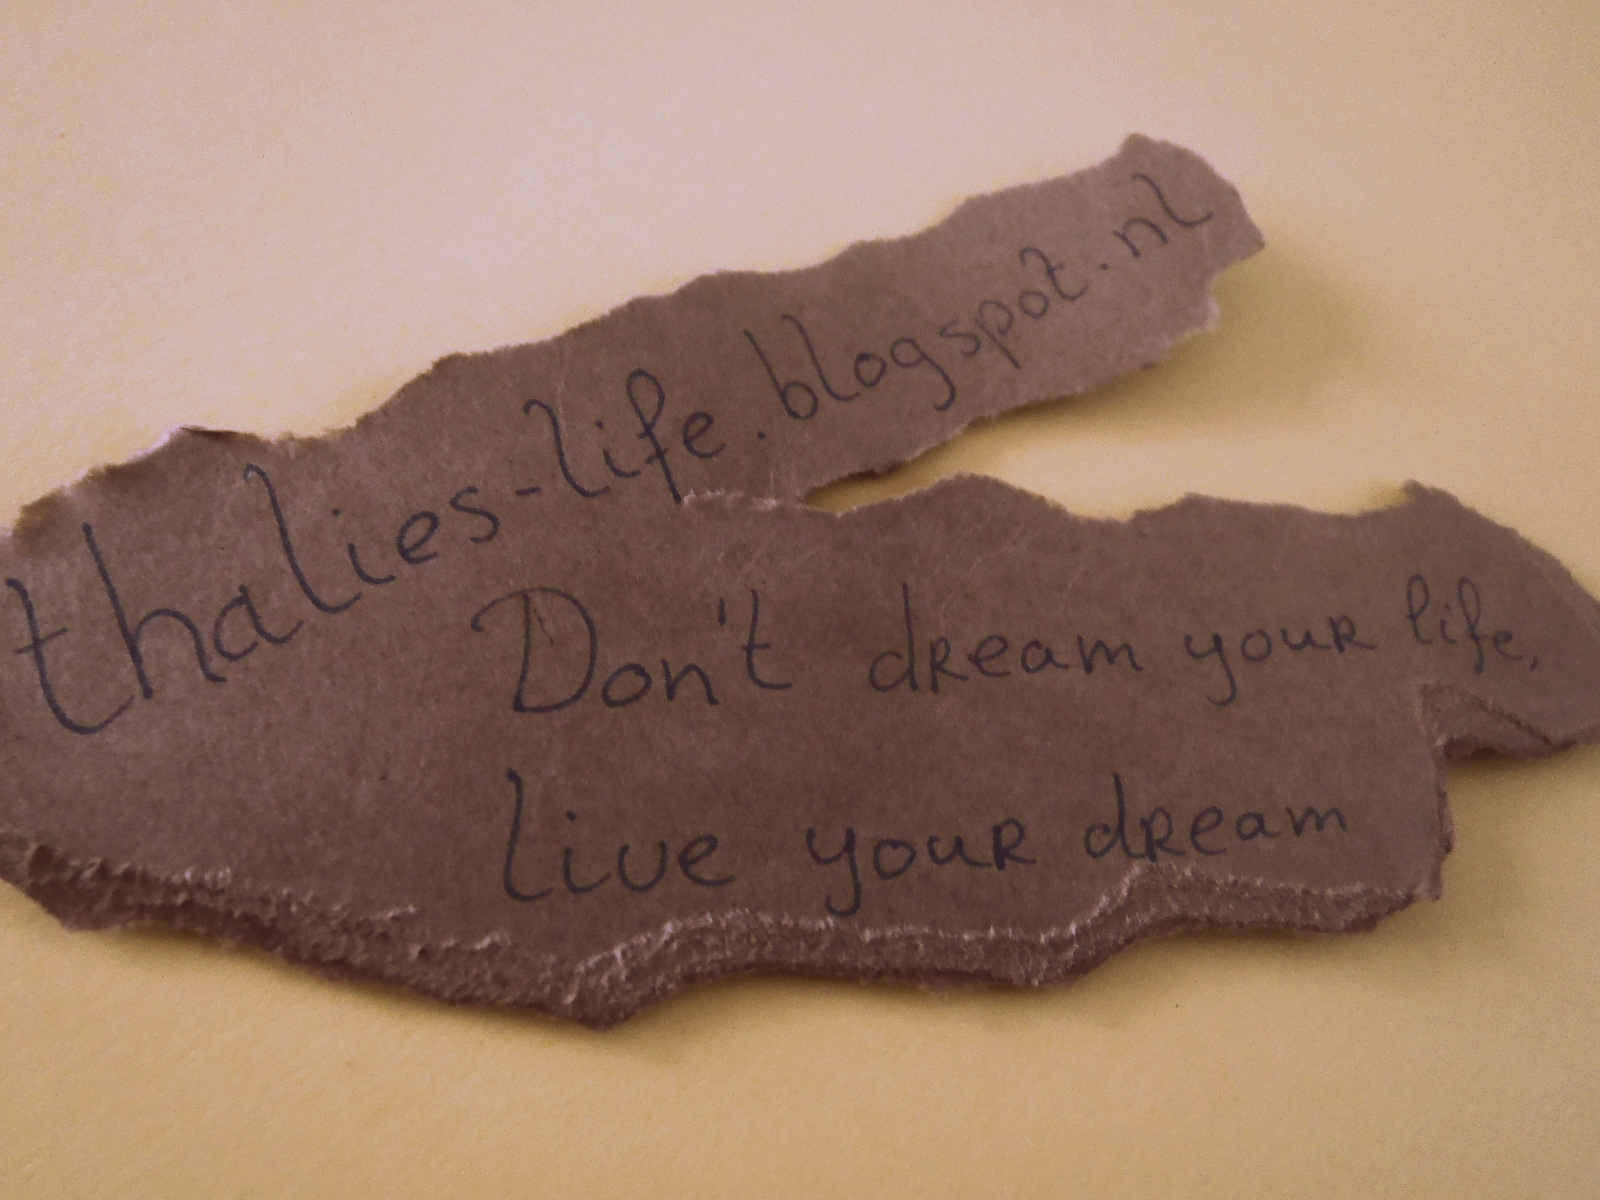 thalies-life.blogspot.nl
Don't dream your life,
Live your dream